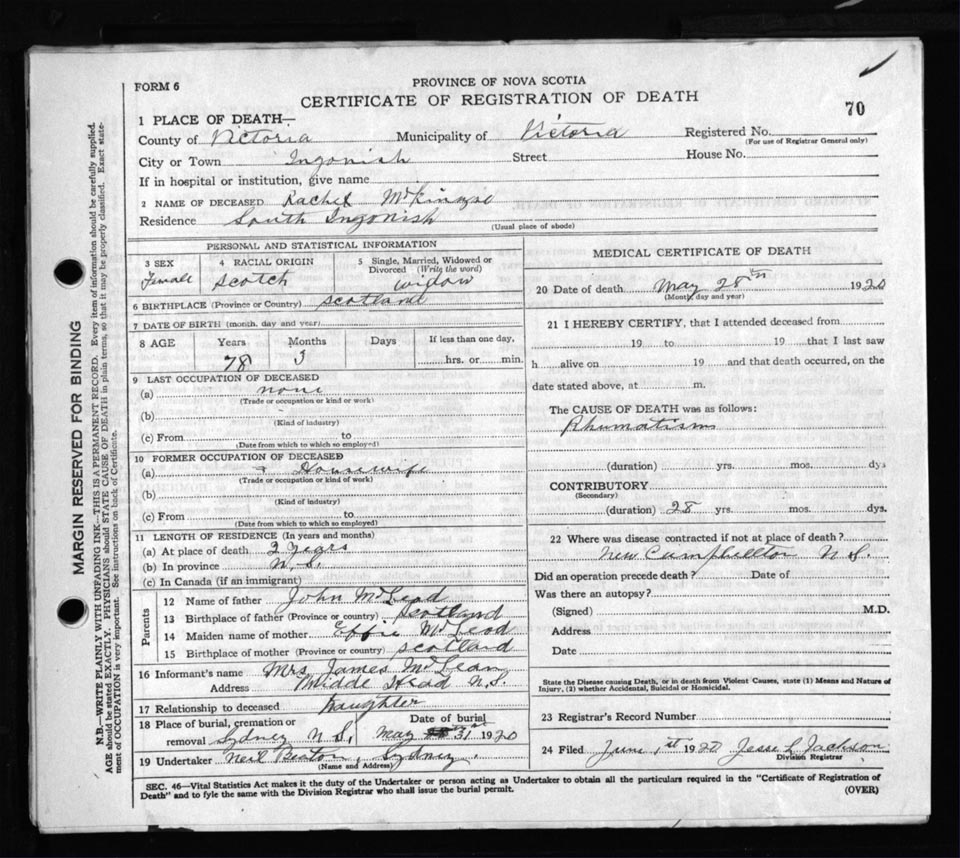 FORM 6
PROVINCE OF NOVA SCOTIA
CERTIFICATE OF REGISTRATION OF DEATH
70
1 PLACE OF DEATH—
County of Victoria Municipality of Victoria Registered No.
(For use of Registrar General only)
City or Town Ingonish Street House No.
If in hospital or institution, give name
2 NAME OF DECEASED Rachel McKinzie
Residence South Ingonish
(Usual place of abode)
PERSONAL AND STATISTICAL INFORMATION
3 SEX 4 RACIAL ORIGIN 5 Single, Married, Widowed or
Divorced (Write the word)
Female Scotch widow
6 BIRTHPLACE (Province or Country) Scotland
7 DATE OF BIRTH (month, day and year)
8 AGE Years Months Days If less than one day,
78 3 hrs. or min.
9 LAST OCCUPATION OF DECEASED
(a) none
(Trade or occupation or kind or work)
(b)
(Kind of industry)
(c) From to
(Date from which to which so employed)
10 FORMER OCCUPATION OF DECEASED
(a) Housewife
(Trade or occupation or kind of work)
(b)
(Kind of industry)
(c) From to
(Date from which to which so employed)
11 LENGTH OF RESIDENCE (In years and months)
(a) At place of death 2 years
(b) In province N.S.
(c) In Canada (if an immigrant)
Parents
12 Name of father John McLeod
13 Birthplace of father (Province or country) Scotland
14 Maiden name of mother Effie McLeod
15 Birthplace of mother (Province or country) Scotland
16 Informant's name Mrs James McLean
Address Midde Head N.S.
17 Relationship to deceased Daughter
18 Place of burial, cremation or Date of burial
removal Sydney N.S. May 31st 1920
19 Undertaker Neil Beaton, Sydney.
(Name and Address)
MEDICAL CERTIFICATE OF DEATH
20 Date of death May 28th 1920
(Month, day and year)
21 I HEREBY CERTIFY, that I attended deceased from
19 to 19 that I last saw
h alive on 19 and that death occurred, on the
date stated above, at m.
The CAUSE OF DEATH was as follows:
Rhumatism
(duration) yrs. mos. dys
CONTRIBUTORY
(Secondary)
(duration) 28 yrs. mos. dys.
22 Where was disease contracted if not at place of death?
New Campbellton N.S.
Did an operation precede death? Date of
Was there an autopsy?
(Signed) M.D.
Address
Date
State the Disease causing Death, or in death from Violent Causes, state (1) Means and Nature of
Injury, (2) whether Accidental, Suicidal or Homicidal.
23 Registrar's Record Number
24 Filed June 1st 1920 Jesse L Jackson
Division Registrar
SEC. 46—Vital Statistics Act makes it the duty of the Undertaker or person acting as Undertaker to obtain all the particulars required in the "Certificate of Registration of
Death" and to fyle the same with the Division Registrar who shall issue the burial permit. (OVER)
MARGIN RESERVED FOR BINDING
N.B.—WRITE PLAINLY WITH UNFADING INK—THIS IS A PERMANENT RECORD. Every item of information should be carefully supplied.
AGE should be stated EXACTLY. PHYSICIANS should STATE CAUSE OF DEATH in plain terms, so that it may be properly classified. Exact state-
ment of OCCUPATION is very important. See instructions on back of Certificate.